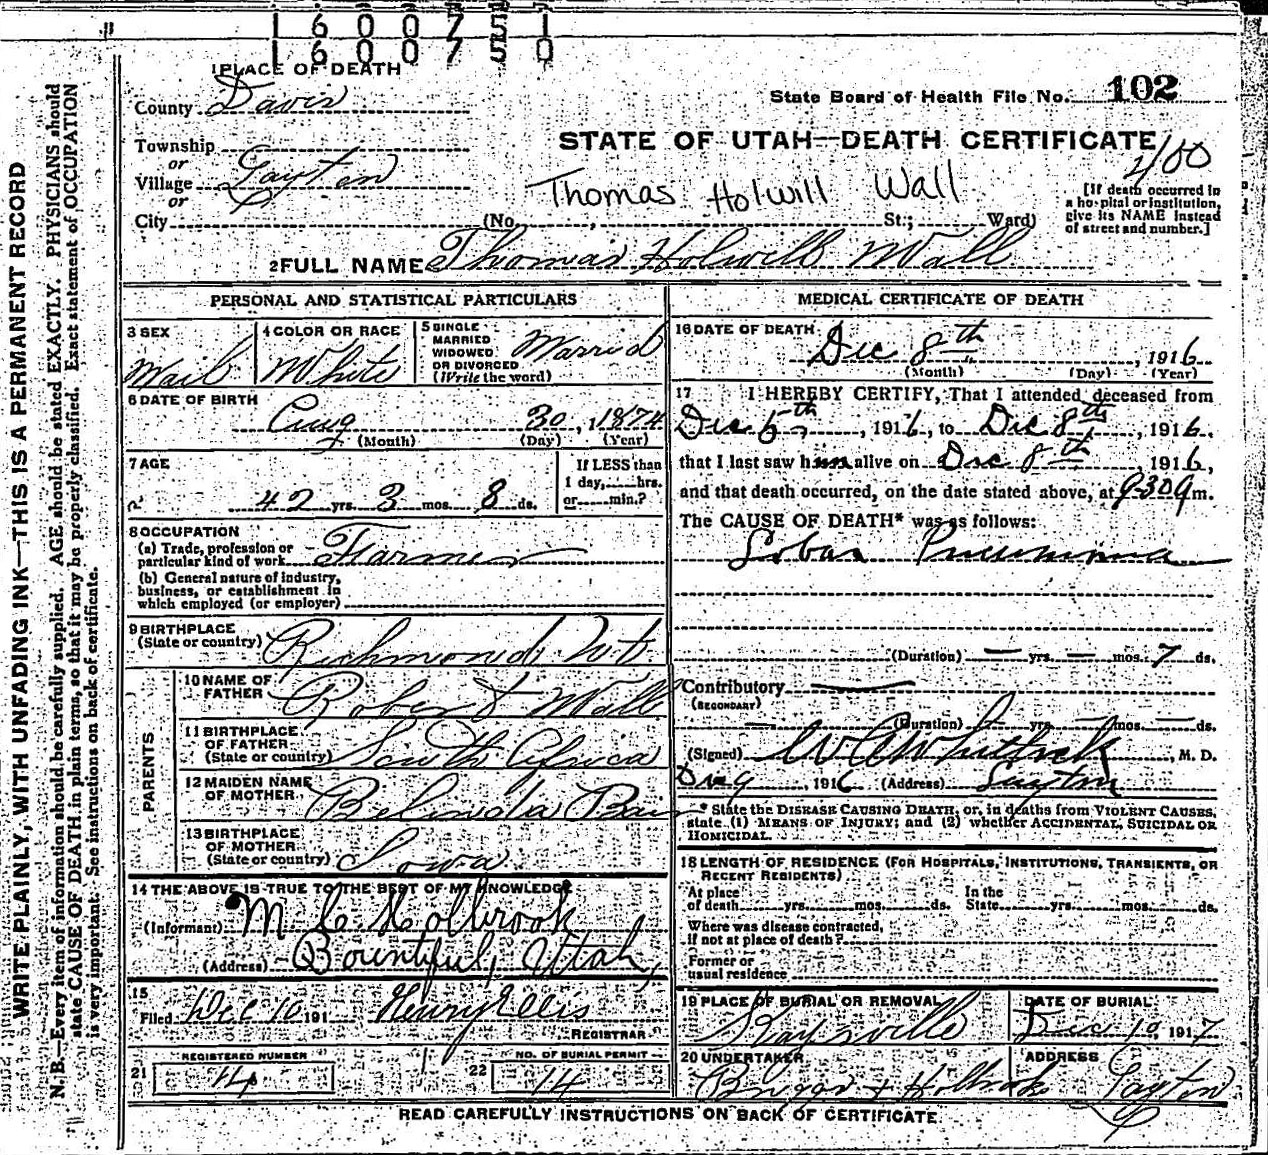 1 6 0 0 7
1 6 0 0 7 0
1 PLACE OF DEATH
County Davis
State Board of Health File No. 102
Township
or
Village Layton
or
City
STATE OF UTAH—DEATH CERTIFICATE
Thomas Holwill Wall
(No. , St.; Ward)
[If death occurred in
a hospital or institution,
give its NAME instead
of street and number.]
2 FULL NAME Thomas Holwill Wall
PERSONAL AND STATISTICAL PARTICULARS
3 SEX
Mail
4 COLOR OR RACE
White
5 SINGLE
MARRIED
WIDOWED
OR DIVORCED
(Write the word)
Married
6 DATE OF BIRTH
Aug 30, 1874
(Month) (Day) (Year)
7 AGE
42 yrs. 3 mos. 8 ds.
If LESS than
1 day, hrs.
or min.?
8 OCCUPATION
(a) Trade, profession or
particular kind of work Farmer
(b) General nature of industry,
business, or establishment in
which employed (or employer)
9 BIRTHPLACE
(State or country) Richmond, Ut.
PARENTS
10 NAME OF
FATHER Robert Wall
11 BIRTHPLACE
OF FATHER
(State or country) South Africa
12 MAIDEN NAME
OF MOTHER Belinda Bair
13 BIRTHPLACE
OF MOTHER
(State or country) Iowa
14 THE ABOVE IS TRUE TO THE BEST OF MY KNOWLEDGE
(Informant) M C Holbrook
(Address) Bountiful, Utah,
15
Filed Dec 10 191 Henry Ellis
REGISTRAR
REGISTERED NUMBER
21 14
NO. OF BURIAL PERMIT
22 14
MEDICAL CERTIFICATE OF DEATH
16 DATE OF DEATH
Dec 8th , 1916
(Month) (Day) (Year)
17 I HEREBY CERTIFY, That I attended deceased from
Dec 5th , 1916, to Dec 8th , 1916.
that I last saw him alive on Dec 8th , 1916,
and that death occurred, on the date stated above, at 9:30 a m.
The CAUSE OF DEATH* was as follows:
Lobar Pneumonia
(Duration) — yrs. — mos. 7 ds.
Contributory —
(SECONDARY)
(Duration) — yrs. — mos. — ds.
(Signed) , M. D.
Dec 9 , 1916 (Address) Layton
* State the DISEASE CAUSING DEATH, or, in deaths from VIOLENT CAUSES,
state (1) MEANS OF INJURY; and (2) whether ACCIDENTAL, SUICIDAL OR
HOMICIDAL.
18 LENGTH OF RESIDENCE (FOR HOSPITALS, INSTITUTIONS, TRANSIENTS, OR
RECENT RESIDENTS)
At place
of death yrs. mos. ds.
In the
State yrs. mos. ds.
Where was disease contracted,
if not at place of death?
Former or
usual residence
19 PLACE OF BURIAL OR REMOVAL
Kaysville
DATE OF BURIAL
Dec 10 1917
20 UNDERTAKER
Briggs & Holbrook
ADDRESS
Layton
READ CAREFULLY INSTRUCTIONS ON BACK OF CERTIFICATE
WRITE PLAINLY, WITH UNFADING INK—THIS IS A PERMANENT RECORD
N. B.—Every item of information should be carefully supplied. AGE should be stated EXACTLY. PHYSICIANS should
state CAUSE OF DEATH in plain terms, so that it may be properly classified. Exact statement of OCCUPATION
is very important. See instructions on back of certificate.